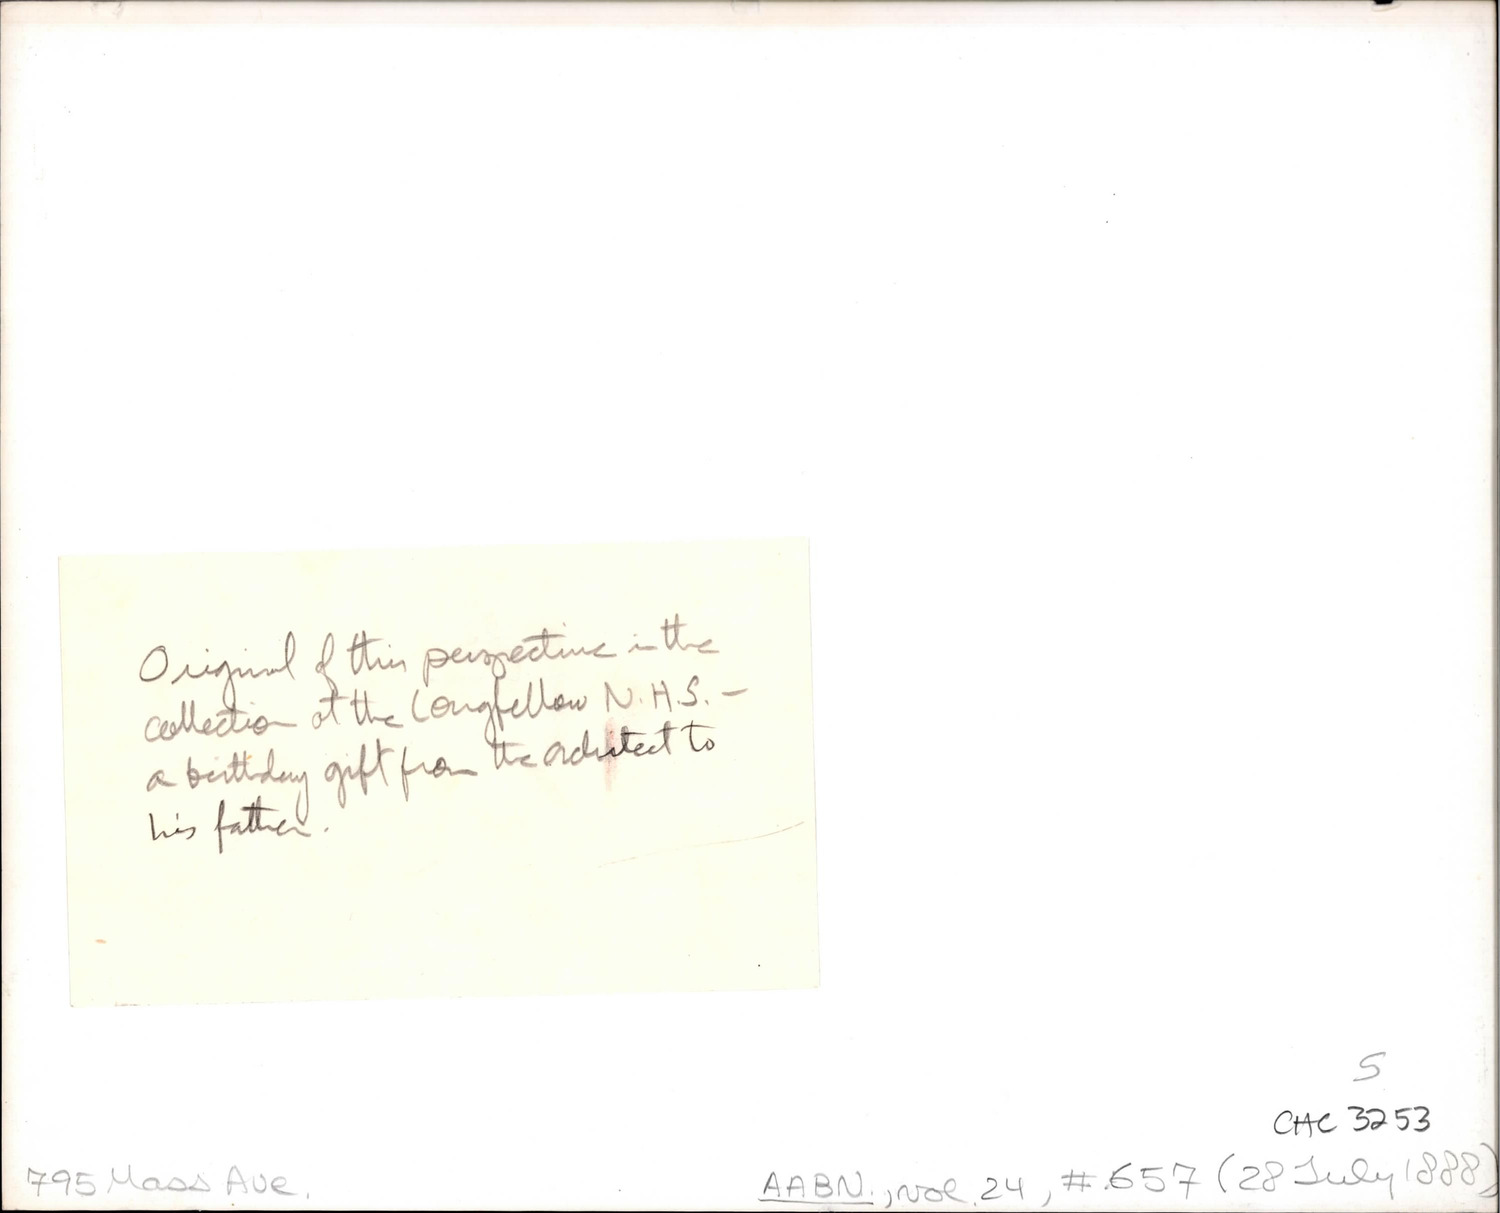 Original of this perspective in the
collection at the Longfellow N.H.S. –
a birthday gift from the architect to
his father.
S
CHC 3253
795 Mass Ave.
AABN., vol. 24, #657 (28 July 1888)